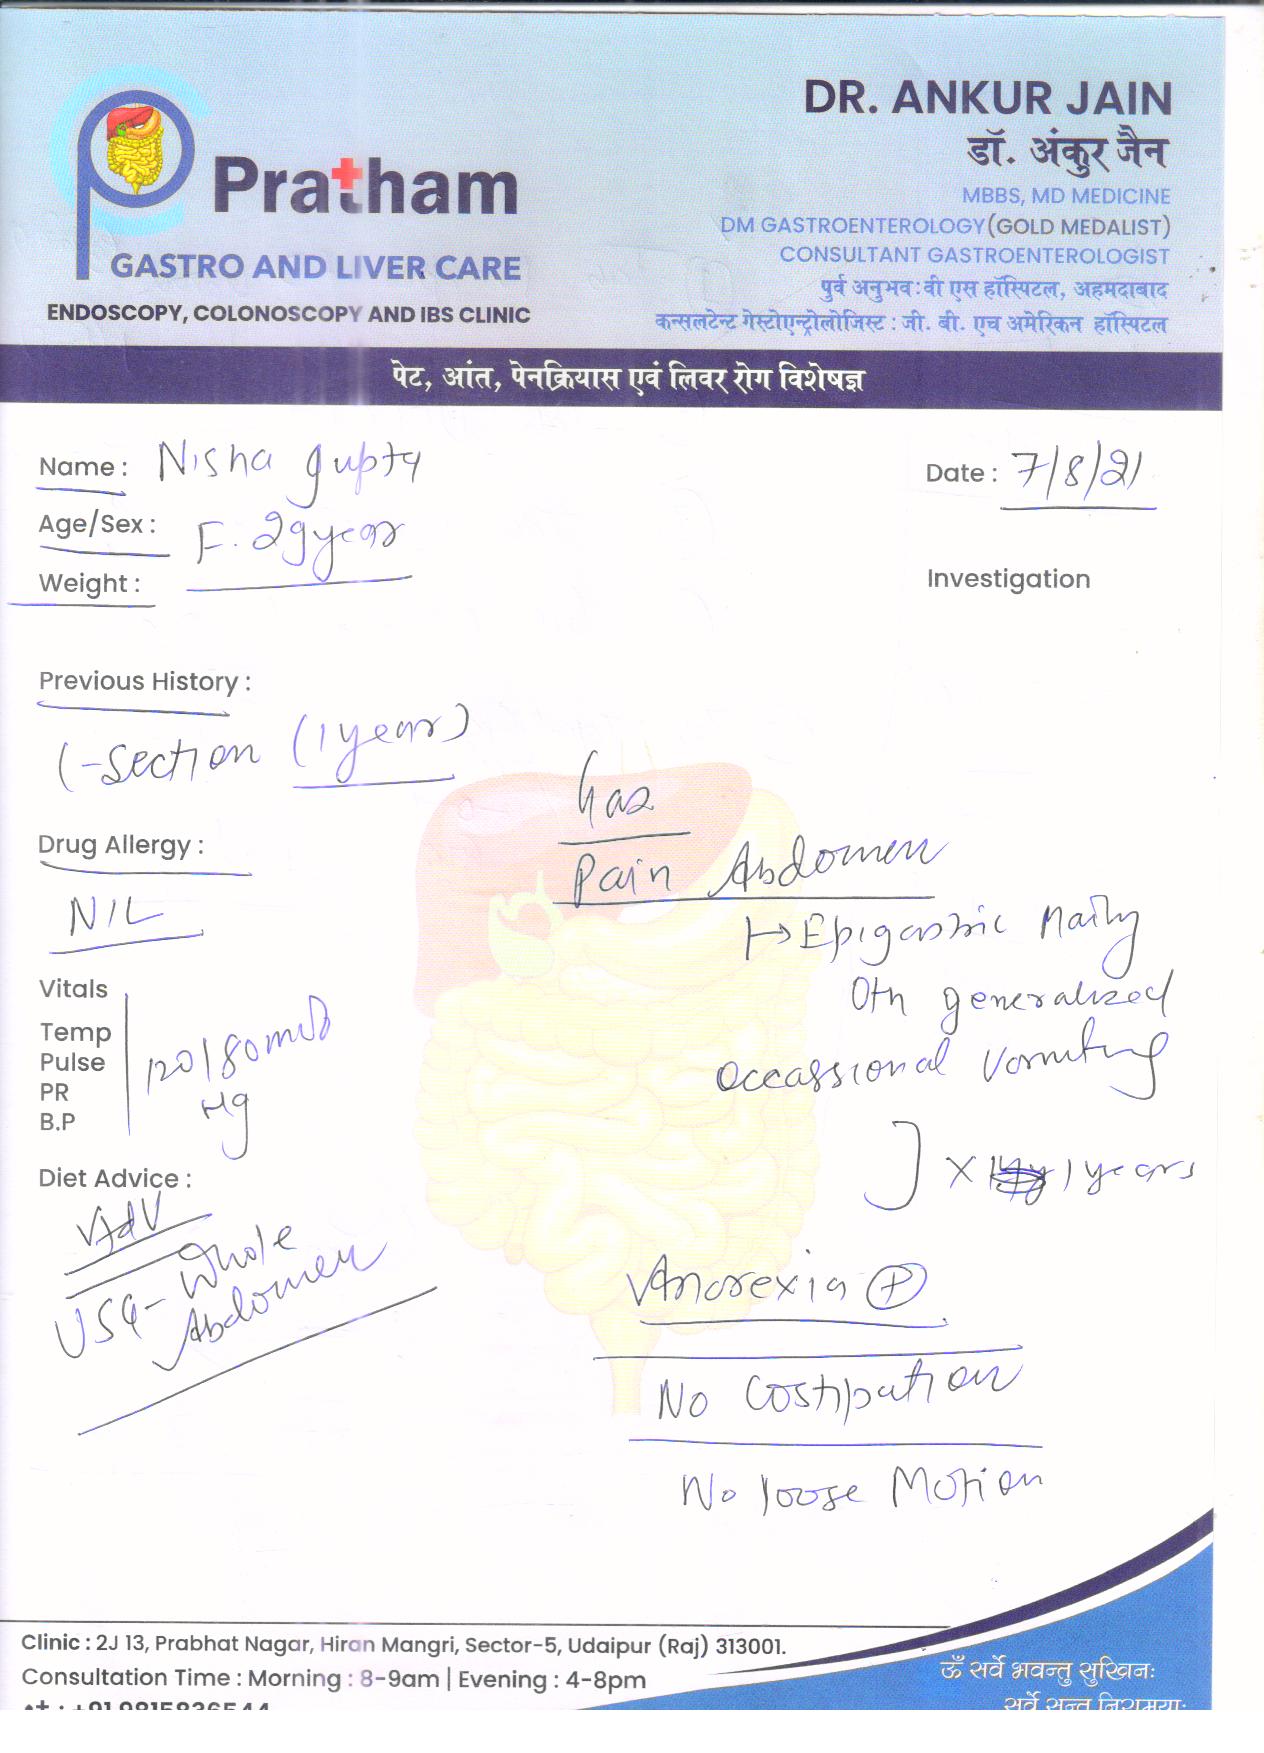 DR. ANKUR JAIN
डॉ. अंकुर जैन
MBBS, MD MEDICINE
DM GASTROENTEROLOGY (GOLD MEDALIST)
CONSULTANT GASTROENTEROLOGIST
पुर्व अनुभव : वी एस हॉस्पिटल, अहमदाबाद
कन्सलटेन्ट गेस्टोएन्ट्रोलोजिस्ट : जी. बी. एच अमेरिकन हॉस्पिटल
Pratham
GASTRO AND LIVER CARE
ENDOSCOPY, COLONOSCOPY AND IBS CLINIC
पेट, आंत, पेनक्रियास एवं लिवर रोग विशेषज्ञ
Name : Nisha gupta
Date : 7/8/21
Age/Sex : F. 29 year
Weight :
Investigation
Previous History :
C-section (1 year)
Gas
Pain Abdomen
→ Epigastric Mainly
generalized
occassional vomiting
] x 1 years
Anorexia ⊕
No Costipation
No loose Motion
Drug Allergy :
NIL
Vitals
Temp
Pulse
PR
B.P
120/80 mm
Hg
Diet Advice :
Adv
USG - Whole
Abdomen
Clinic : 2J 13, Prabhat Nagar, Hiran Mangri, Sector-5, Udaipur (Raj) 313001.
Consultation Time : Morning : 8-9am | Evening : 4-8pm
+91 9815836544
ॐ सर्वे भवन्तु सुखिनः
सर्वे सन्तु निरामयाः